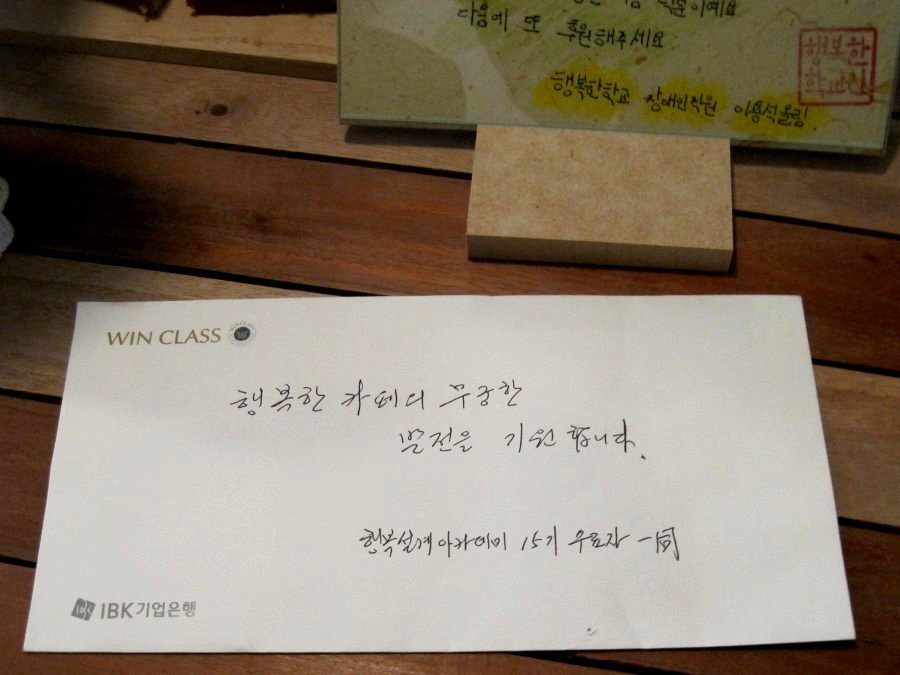 다음에 또 후원해주세요
행복한학교 장애인직원 이용석올림
행복한
WIN CLASS
행복한 카페의 무궁한
발전을 기원합니다.
행복설계아카데미 15기 수료자 一同
IBK기업은행